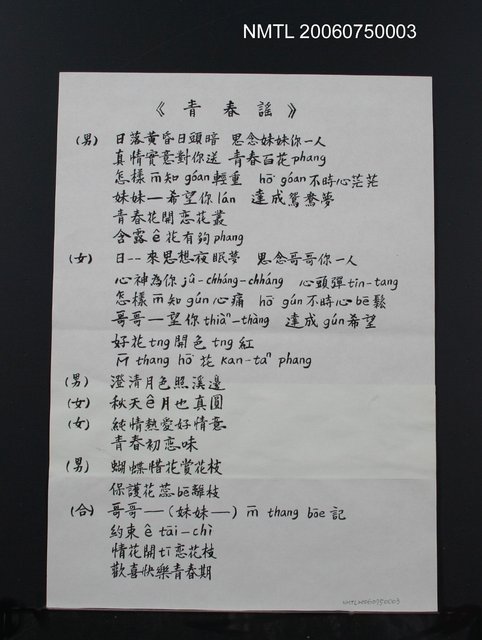 NMTL 20060750003
《青春謠》
(男) 日落黃昏日頭暗 思念妹妹你一人
真情實意對你送 青春百花phang
怎樣m̄知góan輕重 hō͘ góan不時心茫茫
妹妹一希望你lán 達成鴛鴦夢
青春花開戀花叢
含露ê花有夠phang
(女) 日--來思想夜眠夢 思念哥哥你一人
心神為你jû-chháng-chháng 心頭彈tin-tang
怎樣m̄知gún心痛 hō͘ gún不時心bē鬆
哥哥一望你thiàⁿ-thàng 達成gún希望
好花tng開色tng紅
M̄ thang hō͘ 花 kan-taⁿ phang
(男) 澄清月色照溪邊
(女) 秋天ê月也真圓
(女) 純情熱愛好情意
青春初戀味
(男) 蝴蝶惜花賞花枝
保護花蕊bē離枝
(合) 哥哥一(妹妹一) m̄ thang bōe 記
約束ê tāi-chì
情花開tī戀花枝
歡喜快樂青春期
NMTL20060750003